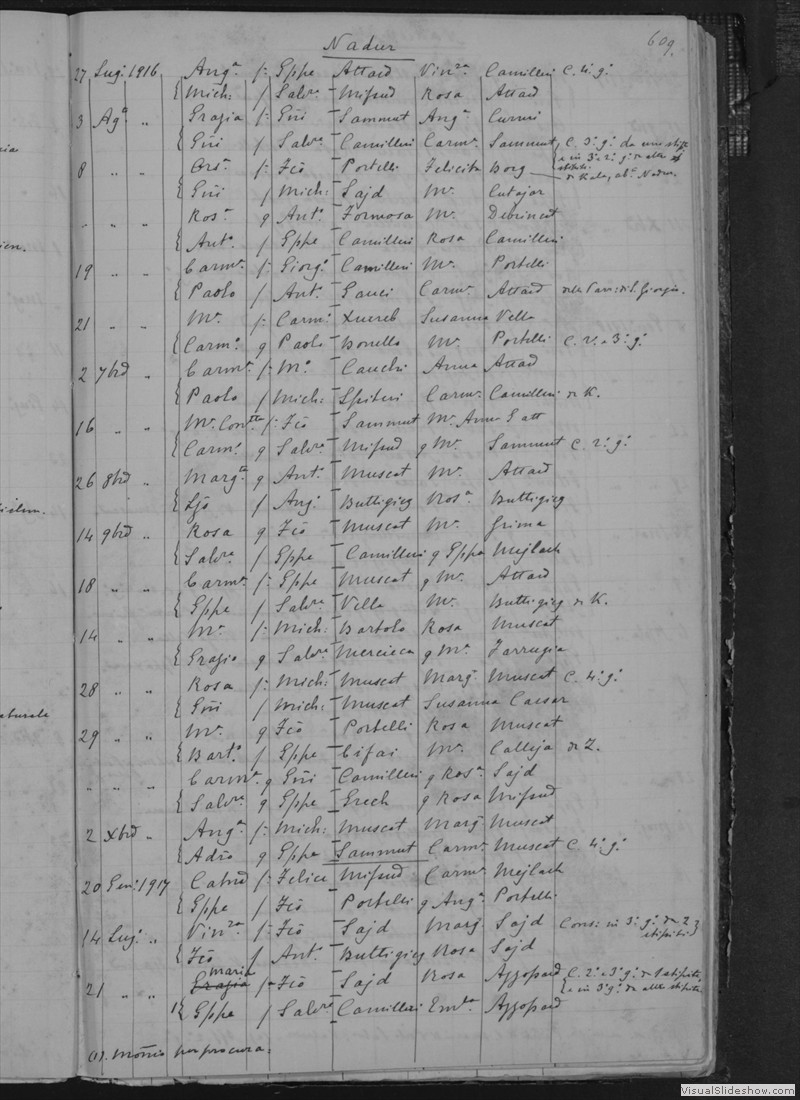 Nadur
609.
27 Lug: 1916 Ang.a f: Eppe Attard Vin.za Camilleri C. 4: g:
{ Mich: f Salv.re Mifsud Rosa Attard
3 Ag.o " Grazia f: Giū Sammut Ang.a Curmi
{ Giū f Salv.re Camilleri Carm.a Sammut C. 3: g: da uno stipite
8 " " f: Fcō Portelli Felicita Borg e in 3. 2: g: da altro stipite
{ Giū f Mich: Sajd M.a Cutajar di Kala, ab: Nadur.
" " " Ros.a q Ant.o Formosa M.a Debrincat
{ Ant.o f Eppe Camilleri Rosa Camilleri
19 " " Carm.a f: Giorg.o Camilleri M.a Portelli
{ Paolo f Ant.o Gauci Carm.a Attard della Parr: di S. Giorgio.
21 " " M.a f: Carm.o Xuereb Susanna Vella
{ Carm.o q Paolo Bonello M.a Portelli C. 2: e 3: g:
2 7bre " Carm.a f: M.o Cauchi Anna Attard
{ Paolo f Mich: Spiteri Carm.a Camilleri di K.
16 " " M.a Con.tta f: Fcō Sammut M.a Anna Gatt
{ Carm.o q Salv.re Mifsud q M.a Sammut C. 2: g:
26 8bre " Marg.ta q Ant.o Muscat M.a Attard
{ f Ang.o Buttigieg Ros.a Buttigieg
14 9bre " Rosa q Fcō Muscat M.a Grima
{ Salv.re f Eppe Camilleri q Eppa Mejlach
18 " " Carm.a f: Eppe Muscat q M.a Attard
{ Eppe f Salv.re Vella M.a Buttigieg di K.
14 " " M.a f: Mich: Bartolo Rosa Muscat
{ Grazio q Salv.re Mercieca q M.a Farrugia
28 " " Rosa f: Mich: Muscat Marg: Muscat C. 4: g:
{ Giū f Mich: Muscat Susanna Caesar
29 " " M.a q Fcō Portelli Rosa Muscat
{ Bart.o f Eppe Cifai M.a Calleja di Z.
" " " Carm.a q Giū Camilleri q Ros.a Sajd
{ Salv.re q Eppe Grech q Rosa Mifsud
2 Xbre " Ang.a f: Mich: Muscat Marg: Muscat
{ Adēo q Eppe Sammut Carm.a Muscat C. 4: g:
20 Gen: 1917 f: Felice Mifsud Carm.a Mejlach
{ Eppe f Fcō Portelli q Ang.a Portelli
14 Lug: " Vin.za f: Fcō Sajd Marg: Sajd Cons: in 3: g: da 2 stipiti
{ Fcō f Ant.o Buttigieg Rosa Sajd
21 " " Maria f: Fcō Sajd Rosa Azzopard C. 2: e 3: g: da 1 stipite
1) { Eppe f Salv.re Camilleri Em.la Azzopard e in 3: g: da altro stipite
(1). Mōnio per procura:
VisualSlideshow.com